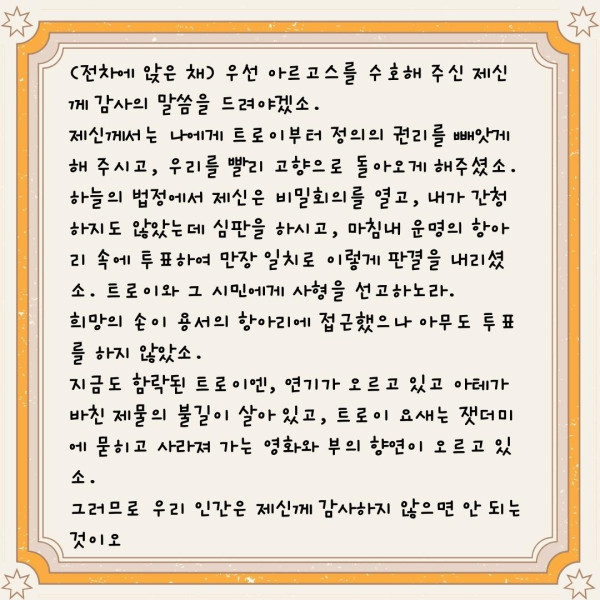 (전차에 앉은 채) 우선 아르고스를 수호해 주신 제신
께 감사의 말씀을 드려야겠소.
제신께서는 나에게 트로이부터 정의의 권리를 빼앗게
해 주시고, 우리를 빨리 고향으로 돌아오게 해주셨소.
하늘의 법정에서 제신은 비밀회의를 열고, 내가 간청
하지도 않았는데 심판을 하시고, 마침내 운명의 항아
리 속에 투표하여 만장 일치로 이렇게 판결을 내리셨
소. 트로이와 그 시민에게 사형을 선고하노라.
희망의 손이 용서의 항아리에 접근했으나 아무도 투표
를 하지 않았소.
지금도 함락된 트로이엔, 연기가 오르고 있고 아테가
바친 제물의 불길이 살아 있고, 트로이 요새는 잿더미
에 묻히고 사라져 가는 영화와 부의 향연이 오르고 있
소.
그러므로 우리 인간은 제신께 감사하지 않으면 안 되는
것이오